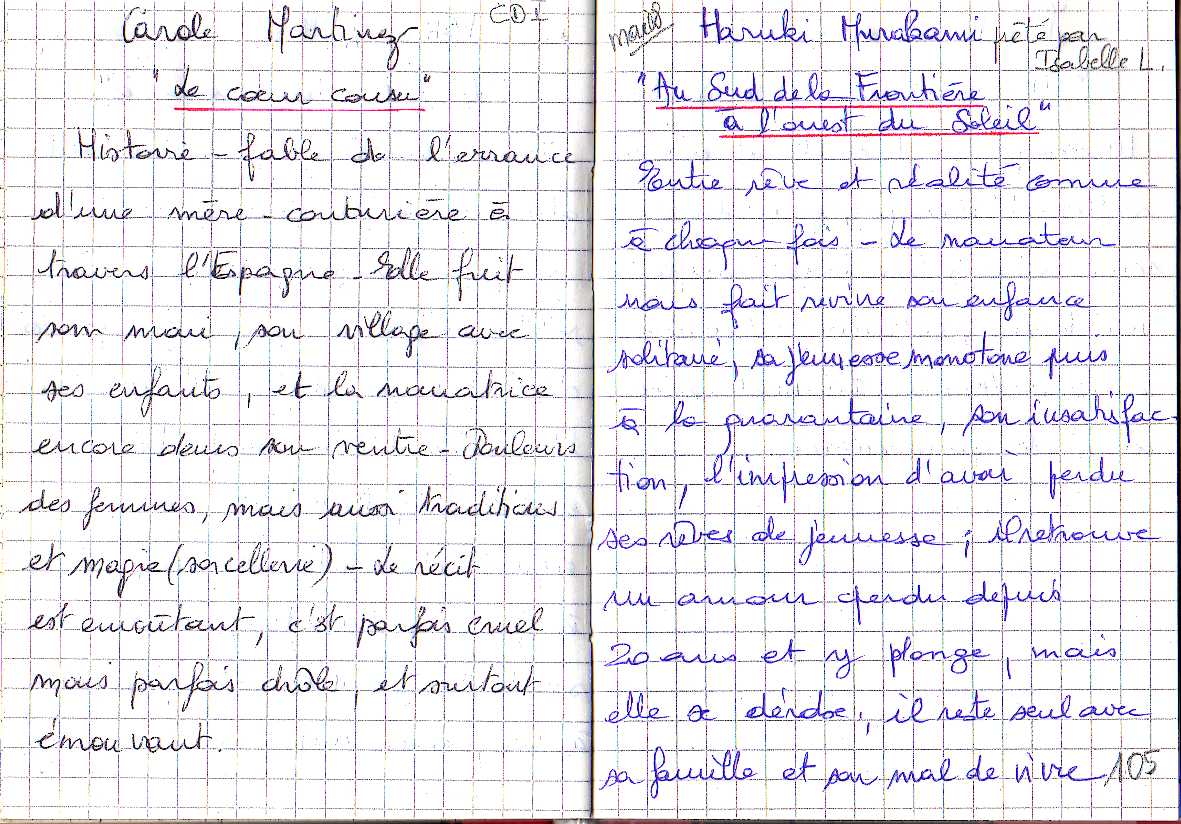 CDI
Carole Martinez
"Le cœur cousu"
Histoire - fable de l'errance
d'une mère-couturière à
travers l'Espagne - Elle fuit
son mari, son village avec
ses enfants, et la narratrice
encore dans son ventre - Douleurs
des femmes, mais aussi traditions
et magie (sorcellerie) - Le récit
est envoûtant, c'est parfois cruel
mais parfois drôle, et surtout
émouvant.
Haruki Murakami prêté par
Isabelle L.
"Au Sud de la Frontière
à l'ouest du Soleil"
Entre rêve et réalité comme
à chaque fois - Le narrateur
nous fait revivre son enfance
solitaire, sa jeunesse monotone puis
à la quarantaine, son insatisfac
tion, l'impression d'avoir perdu
ses rêves de jeunesse ; il retrouve
un amour perdu depuis
20 ans et y plonge, mais
elle se dérobe, il reste seul avec
sa famille et son mal de vivre
105